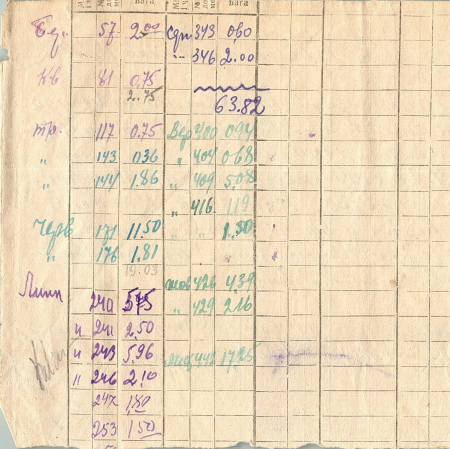 Бер. 57 2.00
Кв 81 0.75
2.75
тр. 117 0.75
" 143 036
" 144 1.86
Черв 171 11.50
" 176 1.81
19.03
Лип 240 5.75
" 241 2.50
" 243 5.96
" 246 2.10
247 1.80
253 1.50
Вага
Срп 343 0.60
" 346 2.00
63.82
Вер 400 094
" 404 0.68
" 409 5.08
" 416. 1.19
" " 1.50
жов 426 4.39
" 429 2.16
17.25